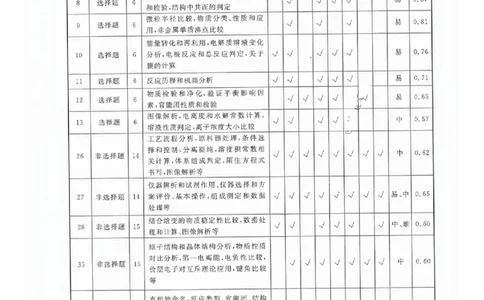 8 选择题 6
和检验,结构中共面的判定
9 选择题 6 微粒半径比较,物质分类、性质和应
用,非金属单质沸点比较 √ √ √ 易 0.81
10 选择题 6 能量转化和再利用,电解质溶液变化
分析,电极反应和总反应判定,关于
膜的计算 √ √ √ √ √ 易 0.76
11 选择题 6 反应历程和机理分析 √ √ √ √ 易 0.71
12 选择题 6 物质检验和净化,验证平衡影响因
素,官能团性质和检验 √ √ √ √ 易 0.65
13 选择题 6 图像解析,电离度和水解常数计算,
溶液性质判定,离子浓度大小比较 √ √ √ 中 0.57
26 非选择题 14 工艺流程分析,原料预处理,条件选
择和控制,分离提纯,溶度积常数相
关计算,体系组成判定,陌生方程式
书写,图像解析等 √ √ √ √ √ √ √ √ 中 0.62
27 非选择题 14 仪器辨析和试剂作用、仪器选择和方
案评价、基本操作,组成测定和数据
处理等 √ √ √ √ √ √ √ √ 易、中 0.65
28 非选择题 15 结合焓变的物质稳定性比较,数据处
理和计算、图像解析等 √ √ √ √ √ √ 中、难 0.60
35 非选择题 15 原子结构和晶体结构分析,物质性质
对比分析,第一电离能、电负性比较,
价层电子对互斥理论应用,键角比较
等 √ √ √ √ √ √ √ 中 0.60
有机物命名,反应类型,官能团,结构